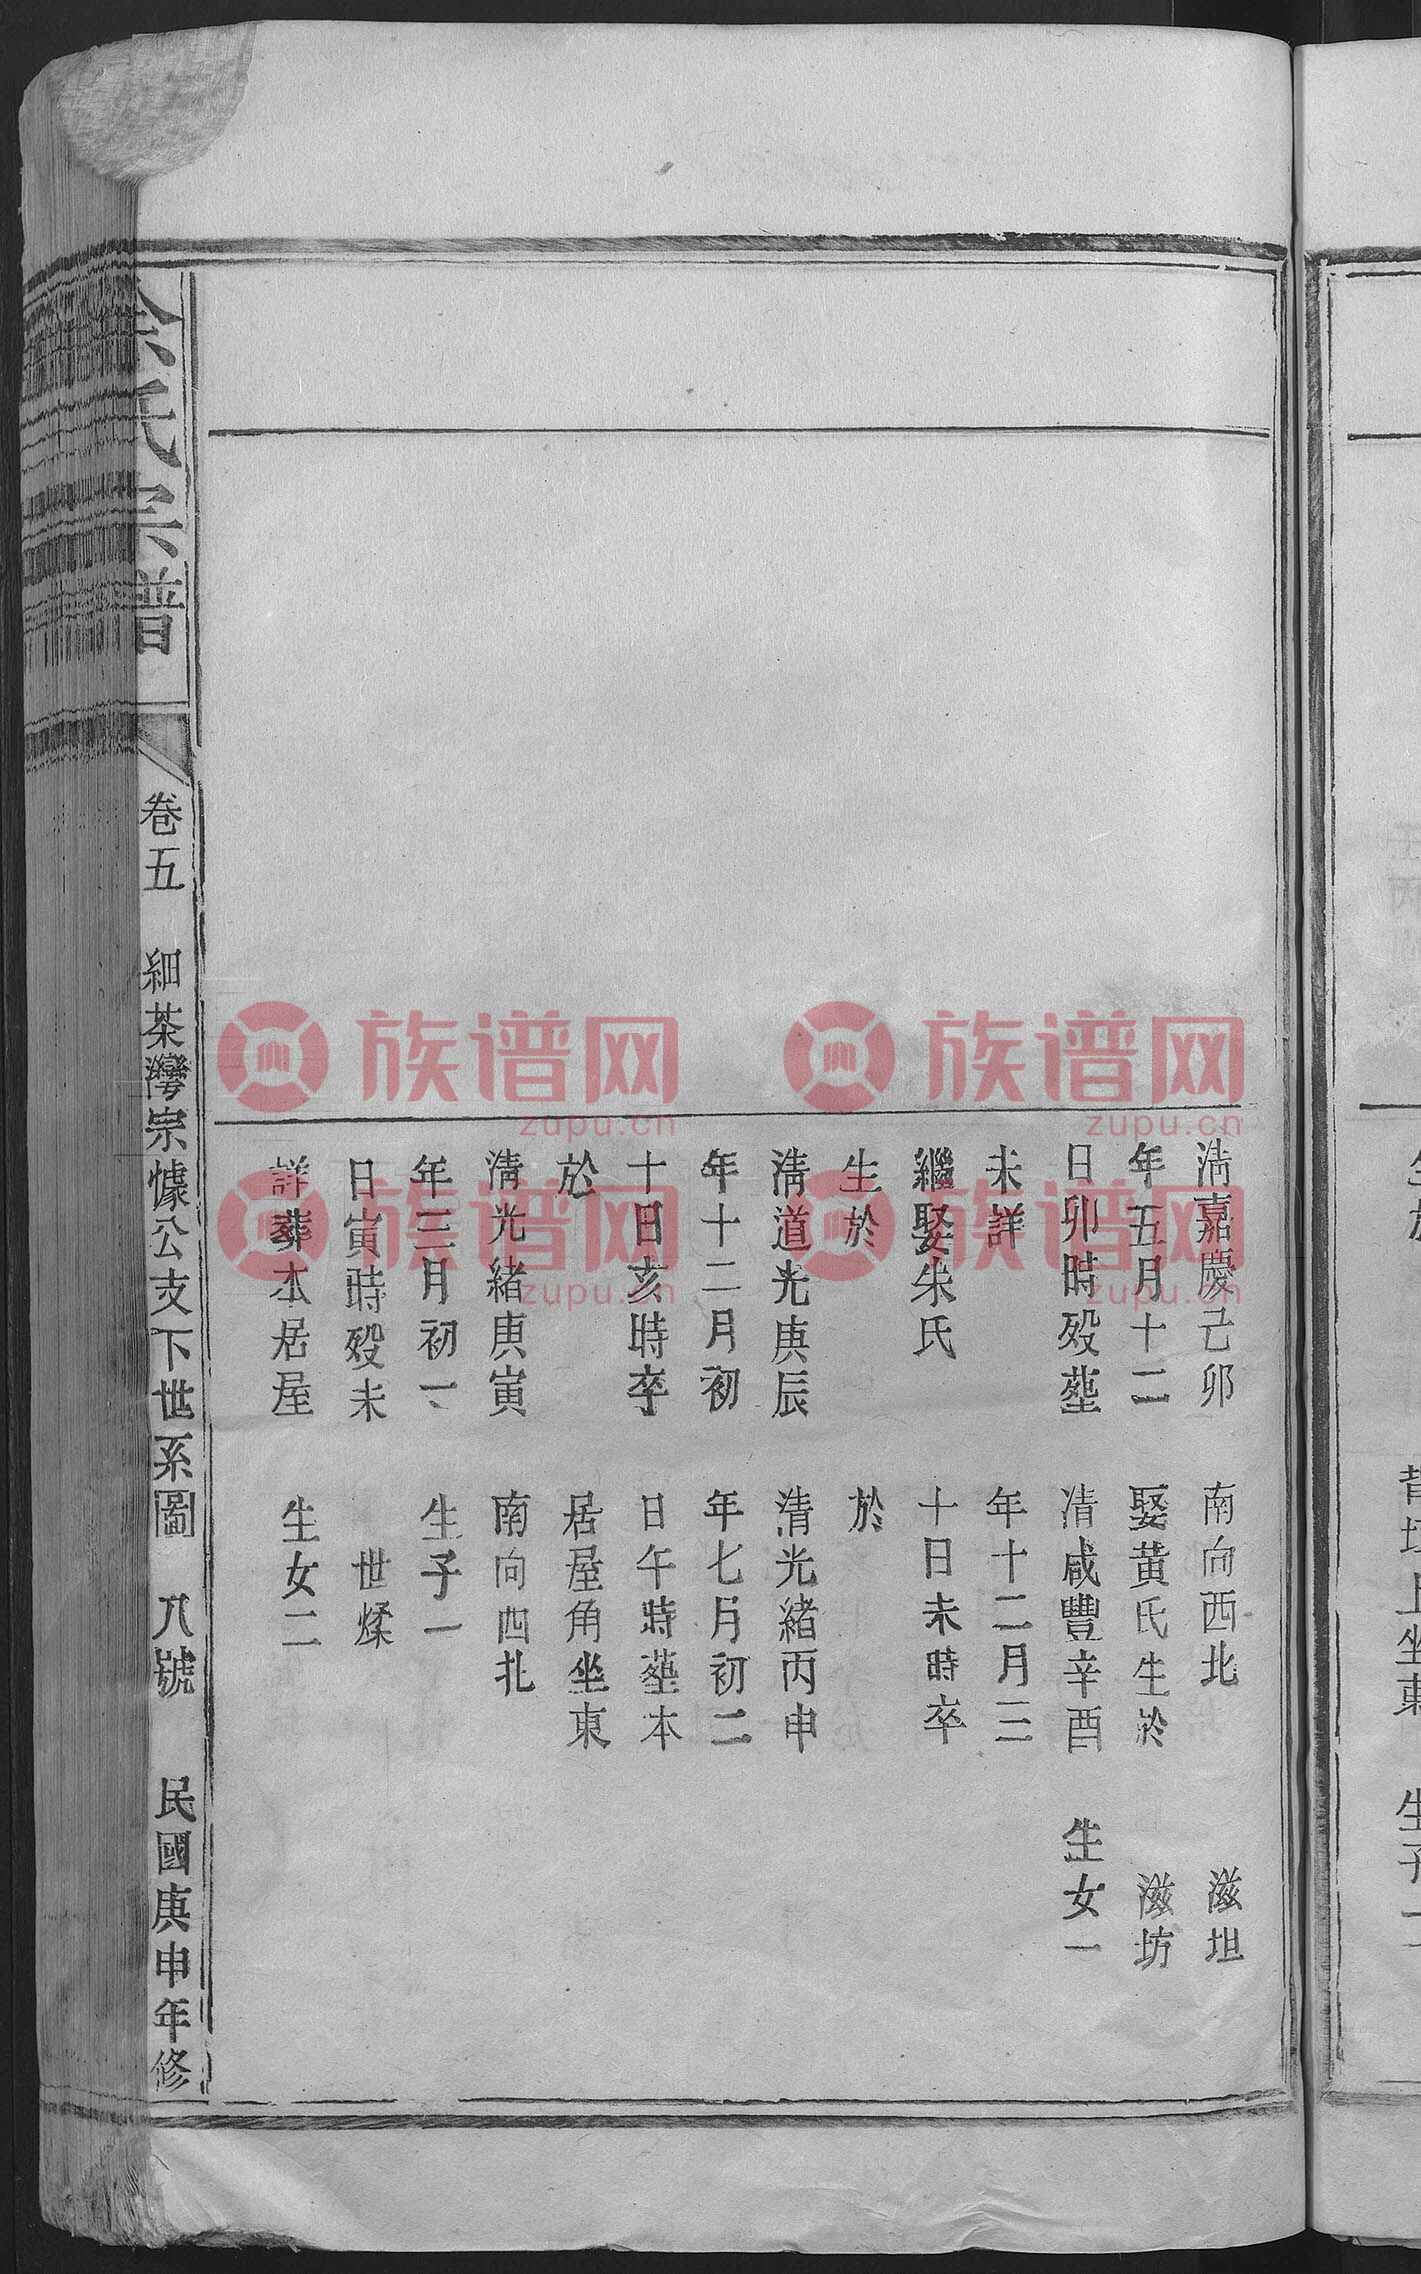 清嘉慶己卯
年五月十二
日卯時歿塟
未詳
繼娶朱氏
生於
清道光庚辰
年十二月初
十日亥時卒
於
清光緒庚寅
年三月初一
日寅時歿未
詳葬本居屋
南向西北
娶黃氏生於
清咸豐辛酉
年十二月三
十日未時卒
於
清光緒丙申
年七月初二
日午時塟本
居屋角坐東
南向西北
生子一
世煣
生女二
滋坦
滋坊
生女一
余氏宗譜
卷五
細茶灣宗懷公支下世系圖
八號
民國庚申年修
族谱网
zupu.cn
族谱网
zupu.cn
族谱网
zupu.cn
族谱网
zupu.cn